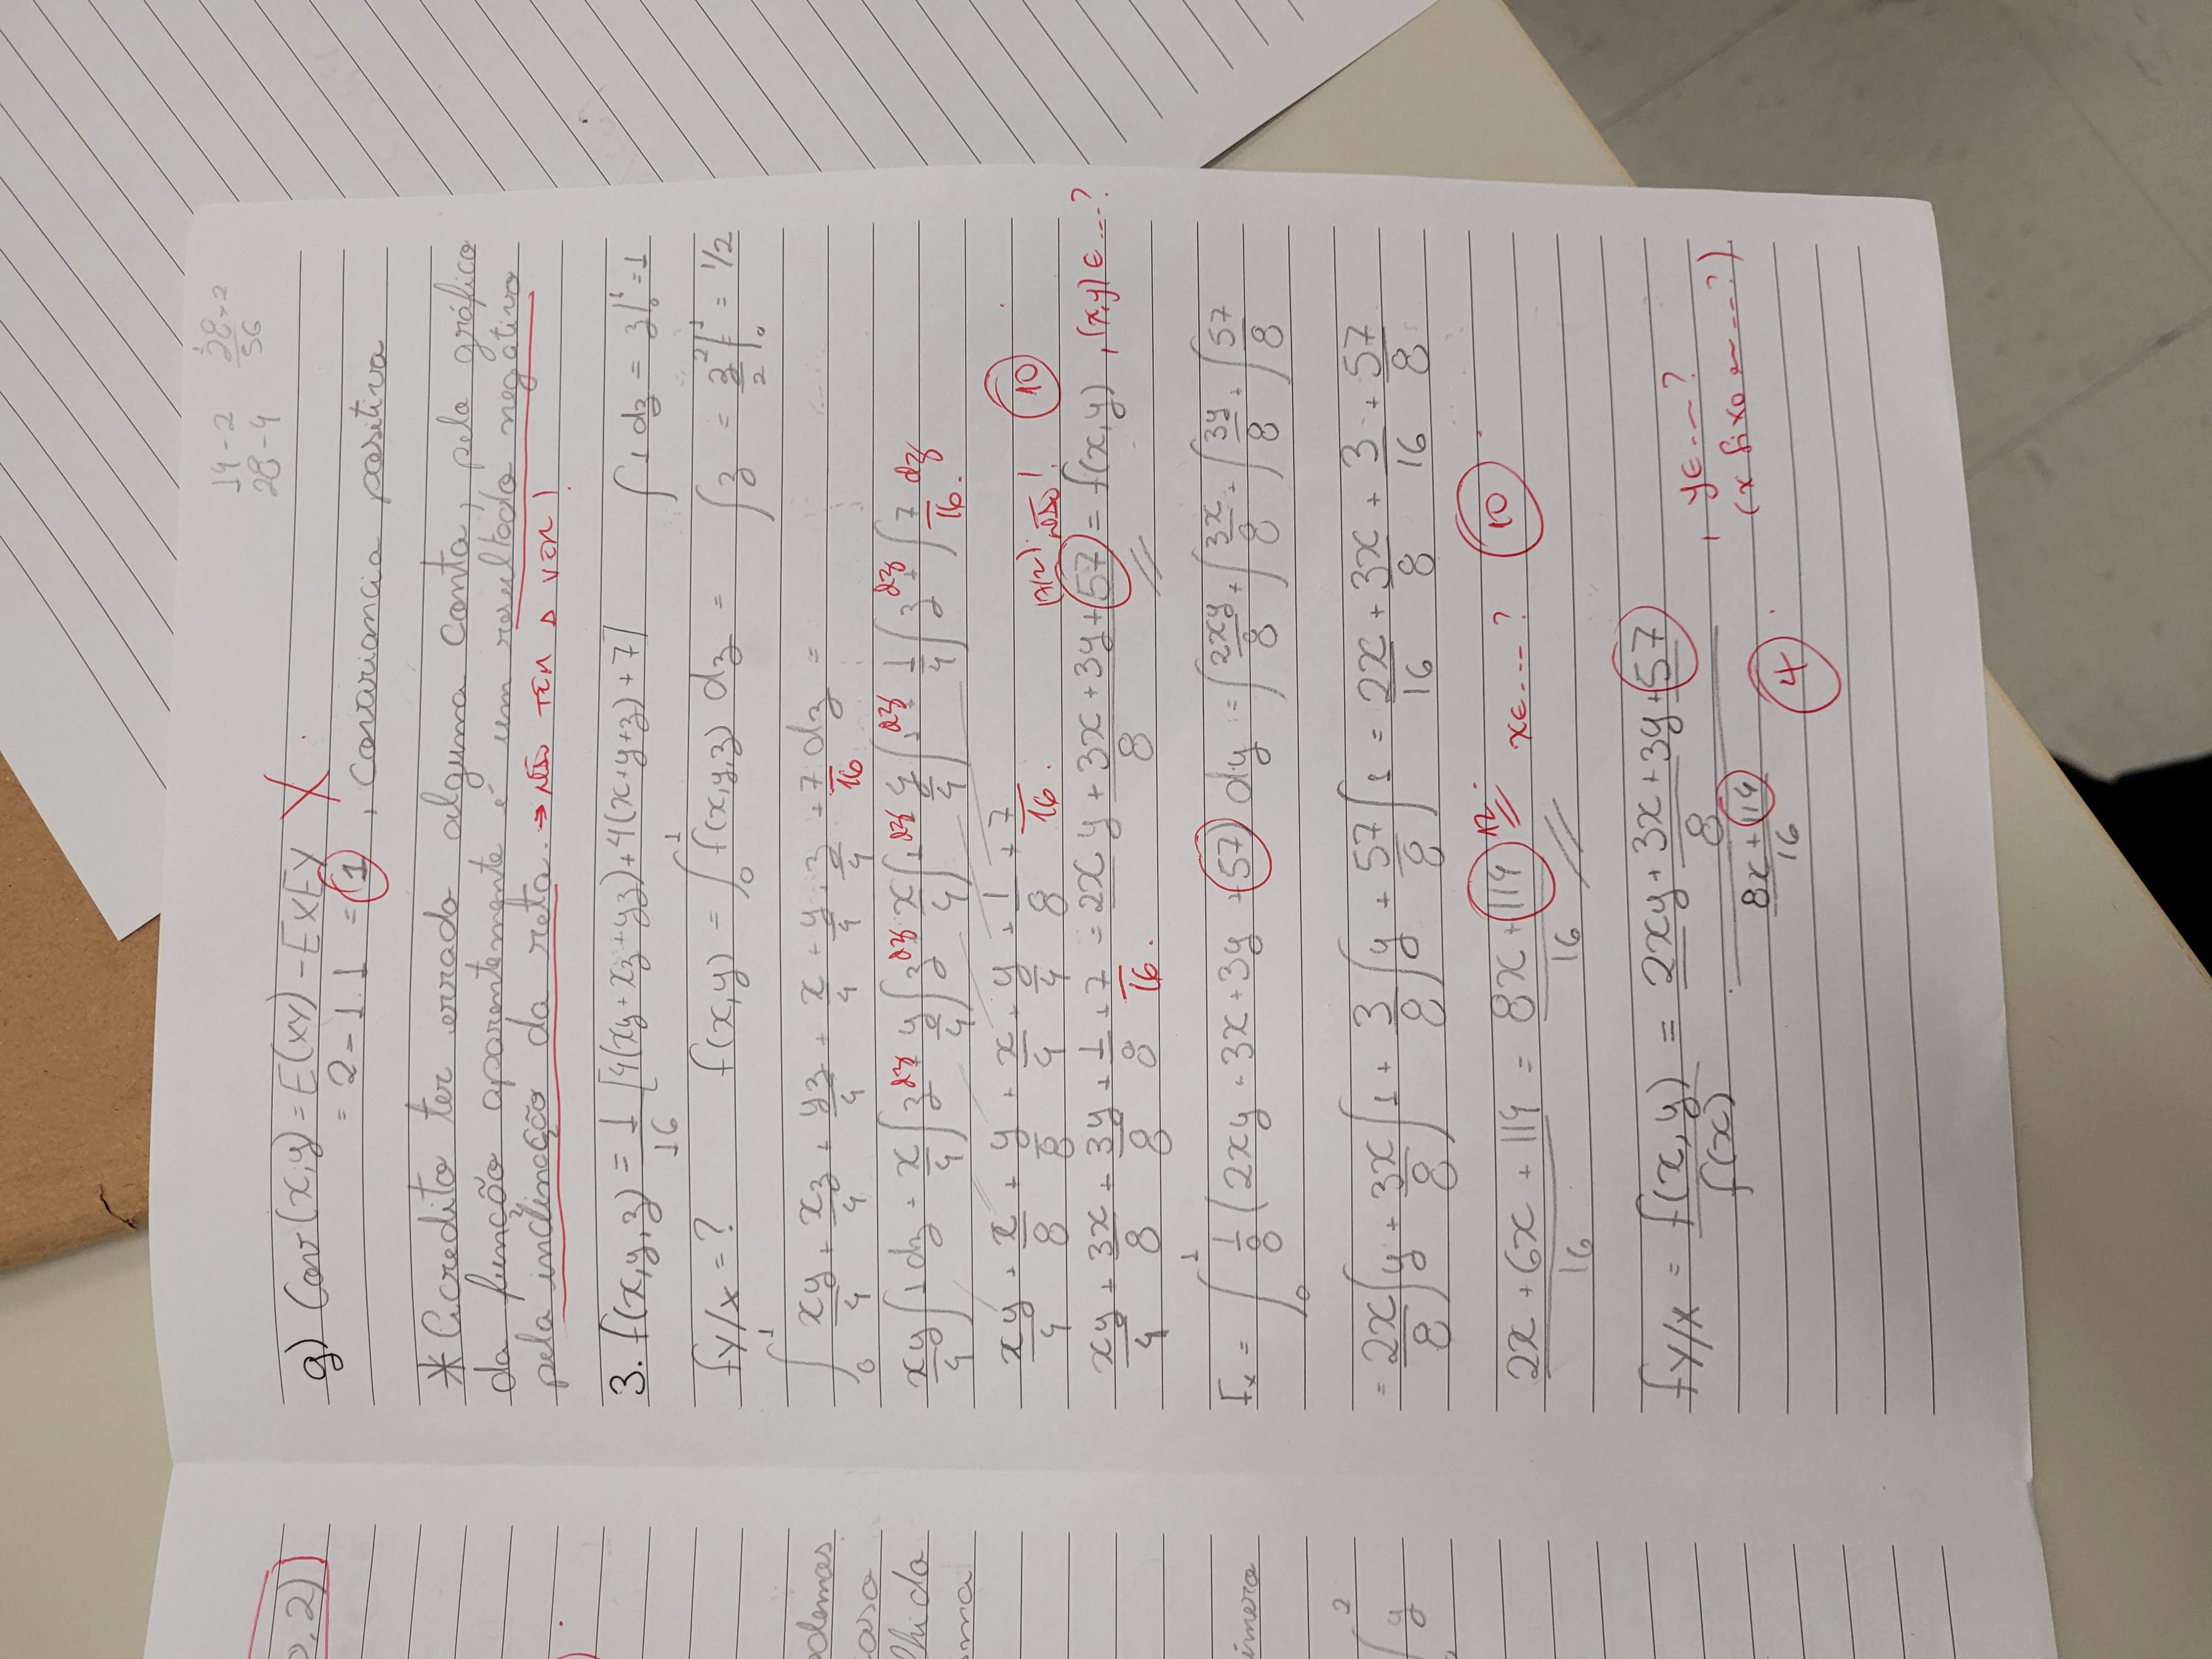 2, 2)]
odemos
caso
lhida
oma
imero
2
∫ y
14 - 2
28 - 4
28 × 2
56
g) Cov(x,y) = E(XY) - EXEY X
= 2 - 1.1 = 1, Covariancia positiva
* Acredito ter errado alguma conta, pelo gráfico
da função aparentemente é um resultado negativo
pela inclinação da reta. → NÃO TEM A VER!
3. f(x,y,z) = 1/16 [4(xy + xz + yz) + 4(x+y+z) + 7] ∫ 1 dz = z|₀¹ = 1
fY/X = ? f(x,y) = ∫₀¹ f(x,y,z) dz = ∫ z = z²/2 |₀¹ = 1/2
∫₀¹ xy/4 + xz/4 + yz/4 + x/4 + y/4 + z/4 + 7/16 dz =
xy/4 ∫ 1 dz + x/4 ∫ z dz + y/4 ∫ z dz x/4 ∫ 1 dz y/4 ∫ 1 dz + 1/4 ∫ z dz + ∫ 7/16 dz
xy/4 + x/8 + y/8 + x/4 + y/4 + 1/8 + 7/16 . 10
NÃO!
xy/4 + 3x/8 + 3y/8 + 1/8 + 7/16 . = 2xy + 3x + 3y + 57/8 = f(x,y) , (x,y) ∈ ...?
Fx = ∫₀¹ 1/8 (2xy + 3x + 3y + 57) dy = ∫ 2xy/8 + ∫ 3x/8 + ∫ 3y/8 + ∫ 57/8
= 2x/8 ∫ y + 3x/8 ∫ 1 + 3/8 ∫ y + 57/8 ∫ 1 = 2x/16 + 3x/8 + 3/16 + 57/8
2x + 6x + 114/16 = 8x + 114/16 12 x ∈ ...? 10
fY/X = f(x,y)/f(x) = 2xy + 3x + 3y + 57/8
8x + 114/16
, y ∈ ...?
(x fixo em ...?)
4